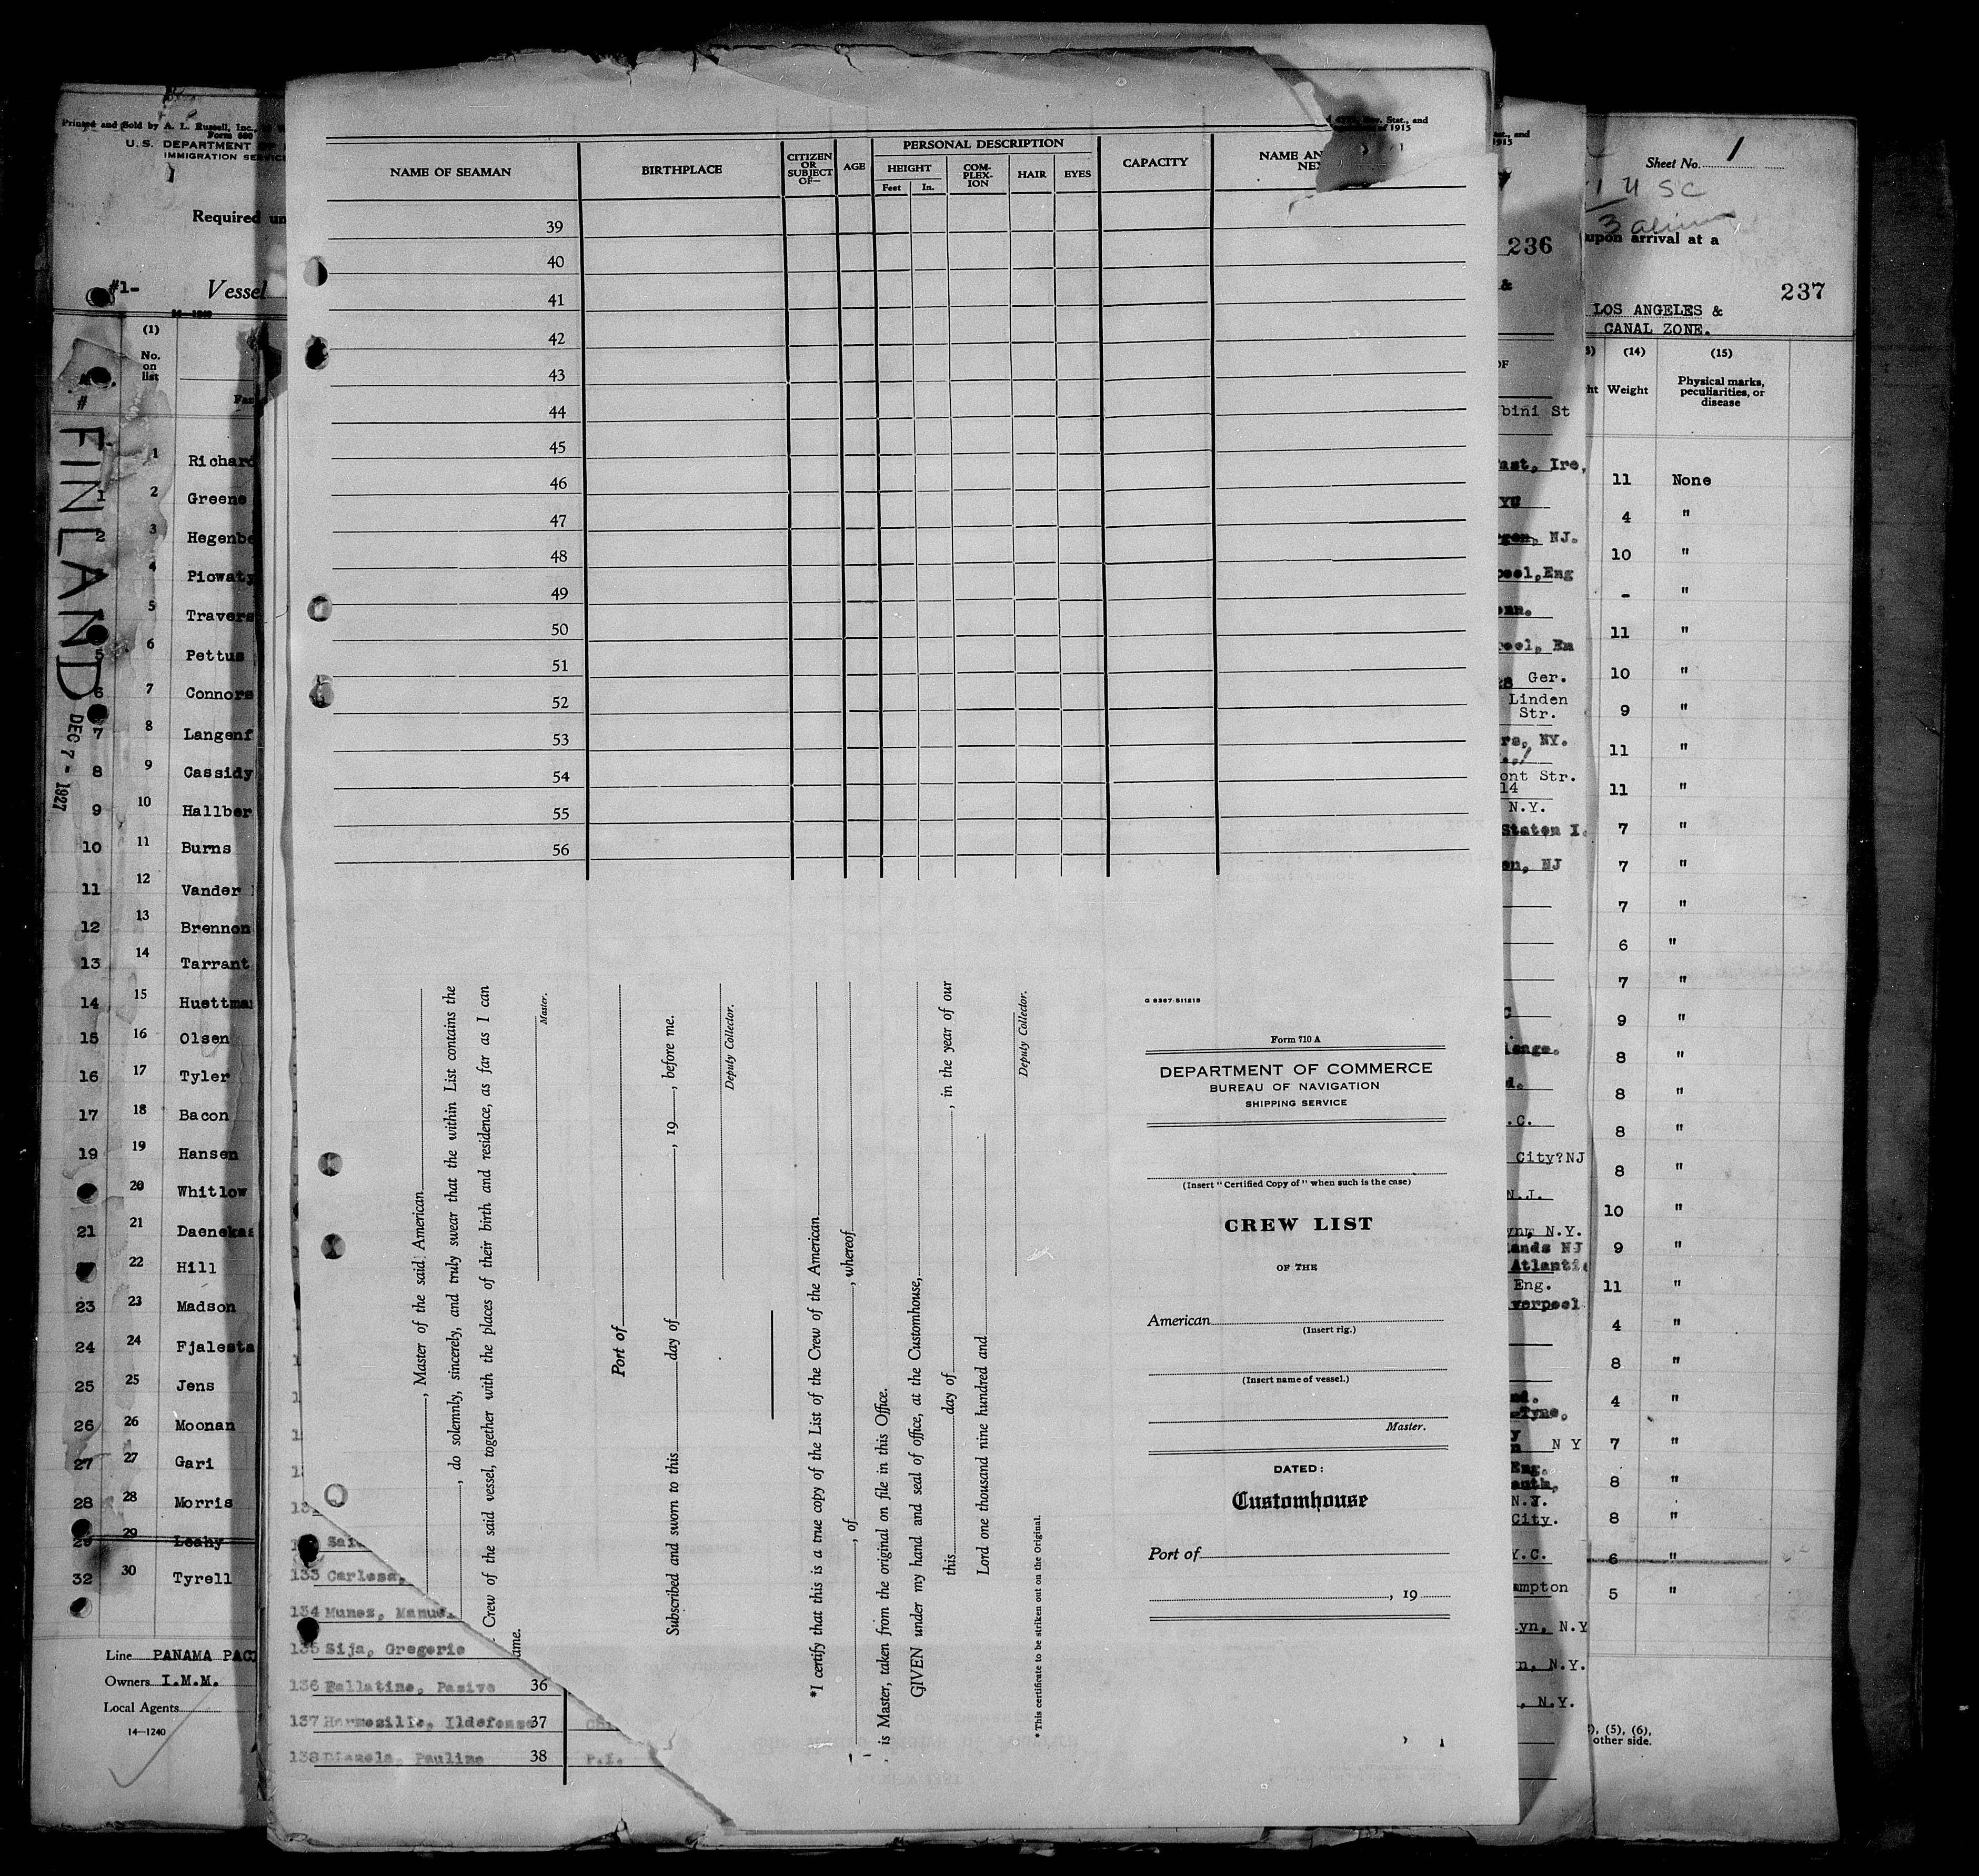 Printed and Sold by A. L. Russell, Inc.,
Form 680
U.S. DEPARTMENT OF
IMMIGRATION SERVICE
Required un
#1-
Vessel
(1)
No.
on
list
Fam
#
FINLAND
DEC 7 - 1927
1 Richard
1 2 Greene
2 3 Hegenbe
4 Piowaty
5 Travers
5 6 Pettus
6 7 Connors
7 8 Langenf
8 9 Cassidy
9 10 Hallber
10 11 Burns
11 12 Vander
12 13 Brennon
13 14 Tarrant
14 15 Huettman
15 16 Olsen
16 17 Tyler
17 18 Bacon
19 19 Hansen
20 Whitlow
21 21 Daenekas
22 Hill
23 23 Madson
24 24 Fjalesta
25 25 Jens
26 26 Moonan
27 27 Gari
28 28 Morris
29 29 Leahy
32 30 Tyrell
Line PANAMA PAC
Owners I.M.M.
Local Agents
14-1240
Stat., and
of 1915
NAME OF SEAMAN
BIRTHPLACE
CITIZEN
OR
SUBJECT
OF—
AGE
PERSONAL DESCRIPTION
HEIGHT
Feet In.
COM-
PLEX-
ION
HAIR
EYES
CAPACITY
NAME AN
NEX
39
40
41
42
43
44
45
46
47
48
49
50
51
52
53
54
55
56
, Master of the said American
, do solemnly, sincerely, and truly swear that the within List contains the
Crew of the said vessel, together with the places of their birth and residence, as far as I can
ame.
Master.
Port of
Subscribed and sworn to this day of , 19 , before me.
Deputy Collector.
*I certify that this is a true copy of the List of the Crew of the American
, of , whereof
is Master, taken from the original on file in this Office.
GIVEN under my hand and seal of office, at the Customhouse,
this day of , in the year of our
Lord one thousand nine hundred and
Deputy Collector.
* This certificate to be striken out on the Original.
G 8367 511218
Form 710 A
DEPARTMENT OF COMMERCE
BUREAU OF NAVIGATION
SHIPPING SERVICE
(Insert "Certified Copy of" when such is the case)
CREW LIST
OF THE
American
(Insert rig.)
(Insert name of vessel.)
Master.
DATED:
Customhouse
Port of
, 19
133 Carlosa,
134 Munez, Manue
135 Sija, Gregorie
136 Pallatine, Pasivo 36
137 Hermosille, Ildefonso 37
138 Dianela, Pauline 38 P.I.
Stat., and
1915
236
&
OF
bini St
ast, Ire,
YU
gen, NJ.
pool,Eng
enn.
rool, En
Ger.
Linden
Str.
rs, NY.
ont Str.
14
N.Y.
Staten I.
en, NJ
.C.
City?NJ
N.J.
yn, N.Y.
ands NJ
Atlantic
Eng.
verpool
Tyne,
N Y
Eng.
outh,
N.Y.
City.
Y.C.
ampton
lyn, N.Y
n, N.Y.
, N.Y.
Sheet No. 1
1 4 SC
3 alien
upon arrival at a
237
LOS ANGELES &
CANAL ZONE.
(14) (15)
ht Weight
Physical marks,
peculiarities, or
disease
11 None
4 "
10 "
- "
11 "
10 "
9 "
11 "
11 "
7 "
7 "
7 "
6 "
7 "
9 "
8 "
8 "
8 "
8 "
10 "
9 "
11 "
4 "
8 "
4 "
7 "
8 "
8 "
6 "
5 "
), (5), (6),
other side.